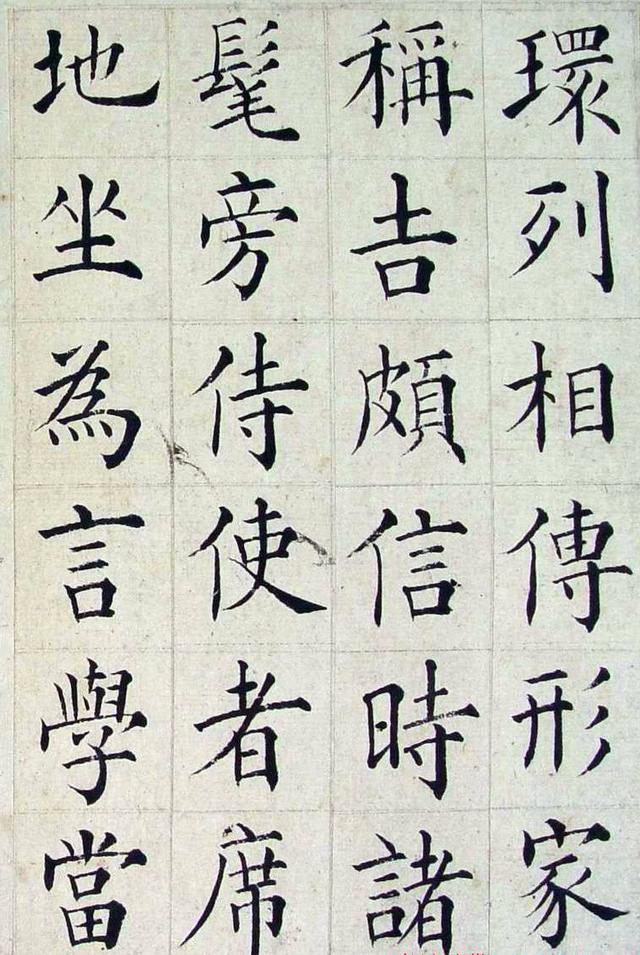 環列相傳形家
稱吉頗信時諸
髦旁侍使者席
地坐為言學當